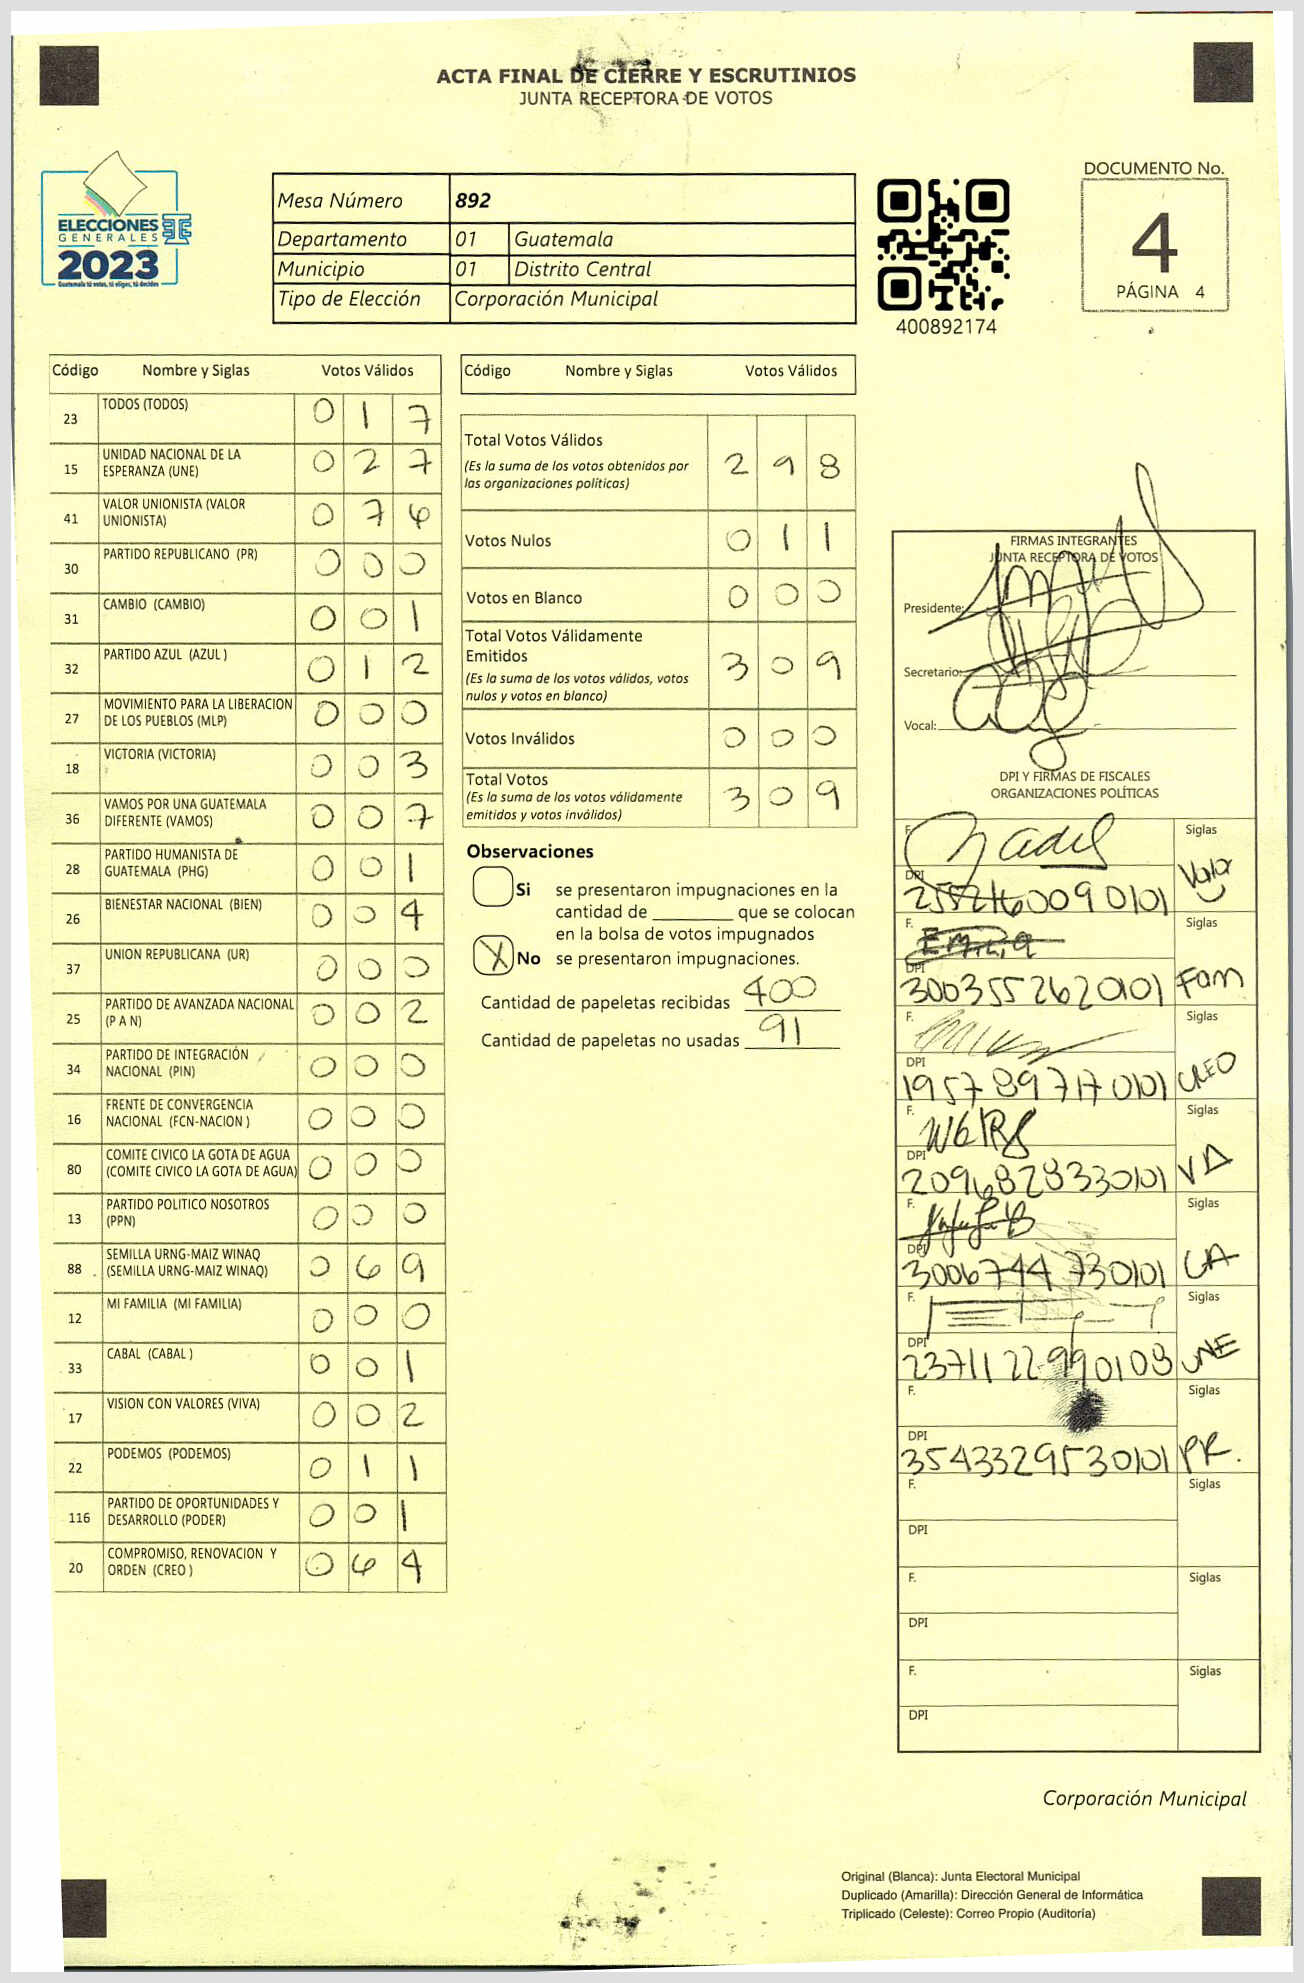 ACTA FINAL DE CIERRE Y ESCRUTINIOS
JUNTA RECEPTORA DE VOTOS
ELECCIONES
GENERALES
2023
Guatemala tú votas, tú eliges, tú decides
Mesa Número 892
Departamento 01 Guatemala
Municipio 01 Distrito Central
Tipo de Elección Corporación Municipal
400892174
DOCUMENTO No.
4
PÁGINA 4
Código Nombre y Siglas Votos Válidos
23 TODOS (TODOS) 0 1 7
15 UNIDAD NACIONAL DE LA ESPERANZA (UNE) 0 2 7
41 VALOR UNIONISTA (VALOR UNIONISTA) 0 7 6
30 PARTIDO REPUBLICANO (PR) 0 0 0
31 CAMBIO (CAMBIO) 0 0 1
32 PARTIDO AZUL (AZUL ) 0 1 2
27 MOVIMIENTO PARA LA LIBERACION DE LOS PUEBLOS (MLP) 0 0 0
18 VICTORIA (VICTORIA) 0 0 3
36 VAMOS POR UNA GUATEMALA DIFERENTE (VAMOS) 0 0 7
28 PARTIDO HUMANISTA DE GUATEMALA (PHG) 0 0 1
26 BIENESTAR NACIONAL (BIEN) 0 0 4
37 UNION REPUBLICANA (UR) 0 0 0
25 PARTIDO DE AVANZADA NACIONAL (P A N) 0 0 2
34 PARTIDO DE INTEGRACIÓN NACIONAL (PIN) 0 0 0
16 FRENTE DE CONVERGENCIA NACIONAL (FCN-NACION ) 0 0 0
80 COMITE CIVICO LA GOTA DE AGUA (COMITE CIVICO LA GOTA DE AGUA) 0 0 0
13 PARTIDO POLITICO NOSOTROS (PPN) 0 0 0
88 SEMILLA URNG-MAIZ WINAQ (SEMILLA URNG-MAIZ WINAQ) 0 6 9
12 MI FAMILIA (MI FAMILIA) 0 0 0
33 CABAL (CABAL ) 0 0 1
17 VISION CON VALORES (VIVA) 0 0 2
22 PODEMOS (PODEMOS) 0 1 1
116 PARTIDO DE OPORTUNIDADES Y DESARROLLO (PODER) 0 0 1
20 COMPROMISO, RENOVACION Y ORDEN (CREO ) 0 6 4
Código Nombre y Siglas Votos Válidos
Total Votos Válidos 2 9 8
(Es la suma de los votos obtenidos por
las organizaciones políticas)
Votos Nulos 0 1 1
Votos en Blanco 0 0 0
Total Votos Válidamente
Emitidos 3 0 9
(Es la suma de los votos válidos, votos
nulos y votos en blanco)
Votos Inválidos 0 0 0
Total Votos 3 0 9
(Es la suma de los votos válidamente
emitidos y votos inválidos)
Observaciones
Si se presentaron impugnaciones en la
cantidad de ________ que se colocan
en la bolsa de votos impugnados
X No se presentaron impugnaciones.
Cantidad de papeletas recibidas 400
Cantidad de papeletas no usadas 91
FIRMAS INTEGRANTES
JUNTA RECEPTORA DE VOTOS
Presidente:
Secretario:
Vocal:
DPI Y FIRMAS DE FISCALES
ORGANIZACIONES POLÍTICAS
F. Siglas
DPI Valor
F. Siglas
DPI 3003552620101 Fam
F. Siglas
DPI 1957897170101 CREO
F. Siglas
DPI 2096828330101 VA
F. Siglas
DPI 3006744730101 CA
F. Siglas
DPI 2371122990108 UNE
F. Siglas
DPI 3543329530101 PR.
F. Siglas
DPI
F. Siglas
DPI
F. Siglas
DPI
Corporación Municipal
Original (Blanca): Junta Electoral Municipal
Duplicado (Amarilla): Dirección General de Informática
Triplicado (Celeste): Correo Propio (Auditoría)